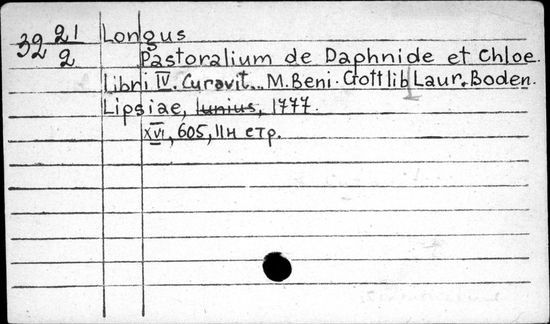 32 21/2 Longus
Pastoralium de Daphnide et Chloe.
Libri IV. Curavit... M. Beni. Gottlib Laur. Boden.
Lipsiae, Iunius, 1777.
XVI, 605, IIн стр.